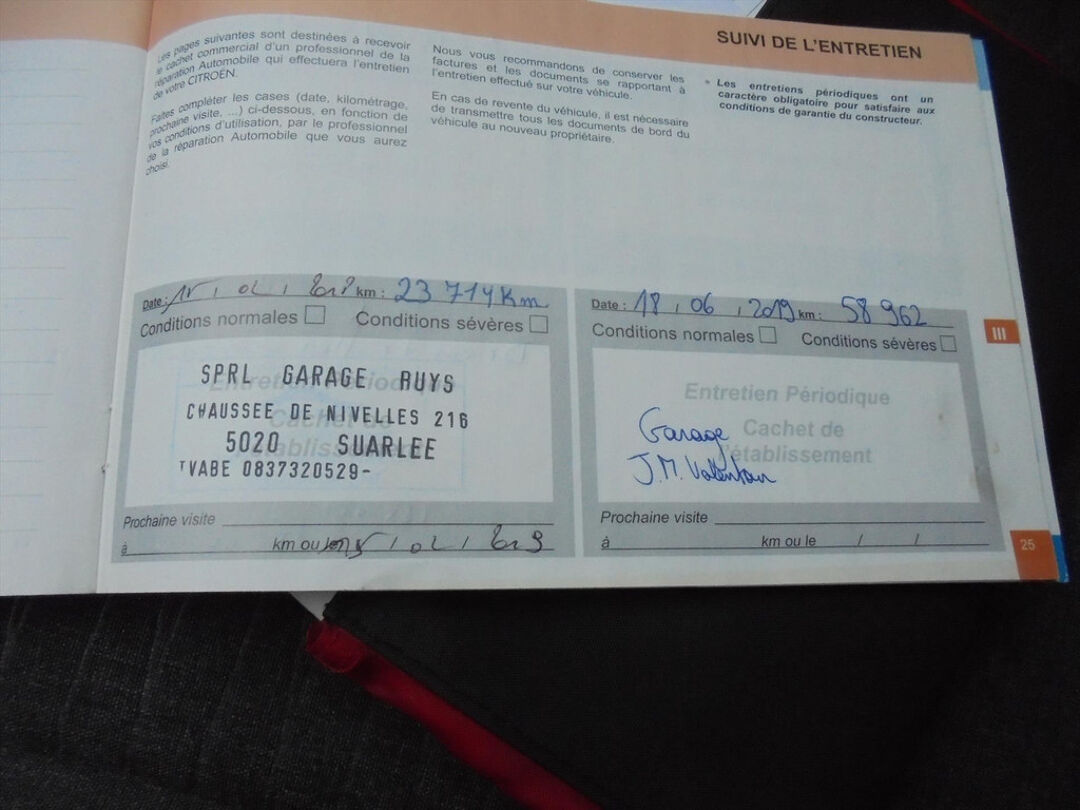 SUIVI DE L'ENTRETIEN
Les pages suivantes sont destinées à recevoir
le cachet commercial d'un professionnel de la
réparation Automobile qui effectuera l'entretien
de votre CITROËN.
Faites compléter les cases (date, kilométrage,
prochaine visite, ...) ci-dessous, en fonction de
vos conditions d'utilisation, par le professionnel
de la réparation Automobile que vous aurez
choisi.
Nous vous recommandons de conserver les
factures et les documents se rapportant à
l'entretien effectué sur votre véhicule.
En cas de revente du véhicule, il est nécessaire
de transmettre tous les documents de bord du
véhicule au nouveau propriétaire.
* Les entretiens périodiques ont un
caractère obligatoire pour satisfaire aux
conditions de garantie du constructeur.
Date : km : 23 714 Km
Conditions normales Conditions sévères
Entretien Périodique
Cachet de
l'établissement
SPRL GARAGE RUYS
CHAUSSEE DE NIVELLES 216
5020 SUARLEE
TVABE 0837320529-
Prochaine visite
à km ou le
Date : 18 / 06 / 2019 km : 58 962
Conditions normales Conditions sévères
Entretien Périodique
Cachet de
l'établissement
Garage
J.M.
Prochaine visite
à km ou le / /
III
25